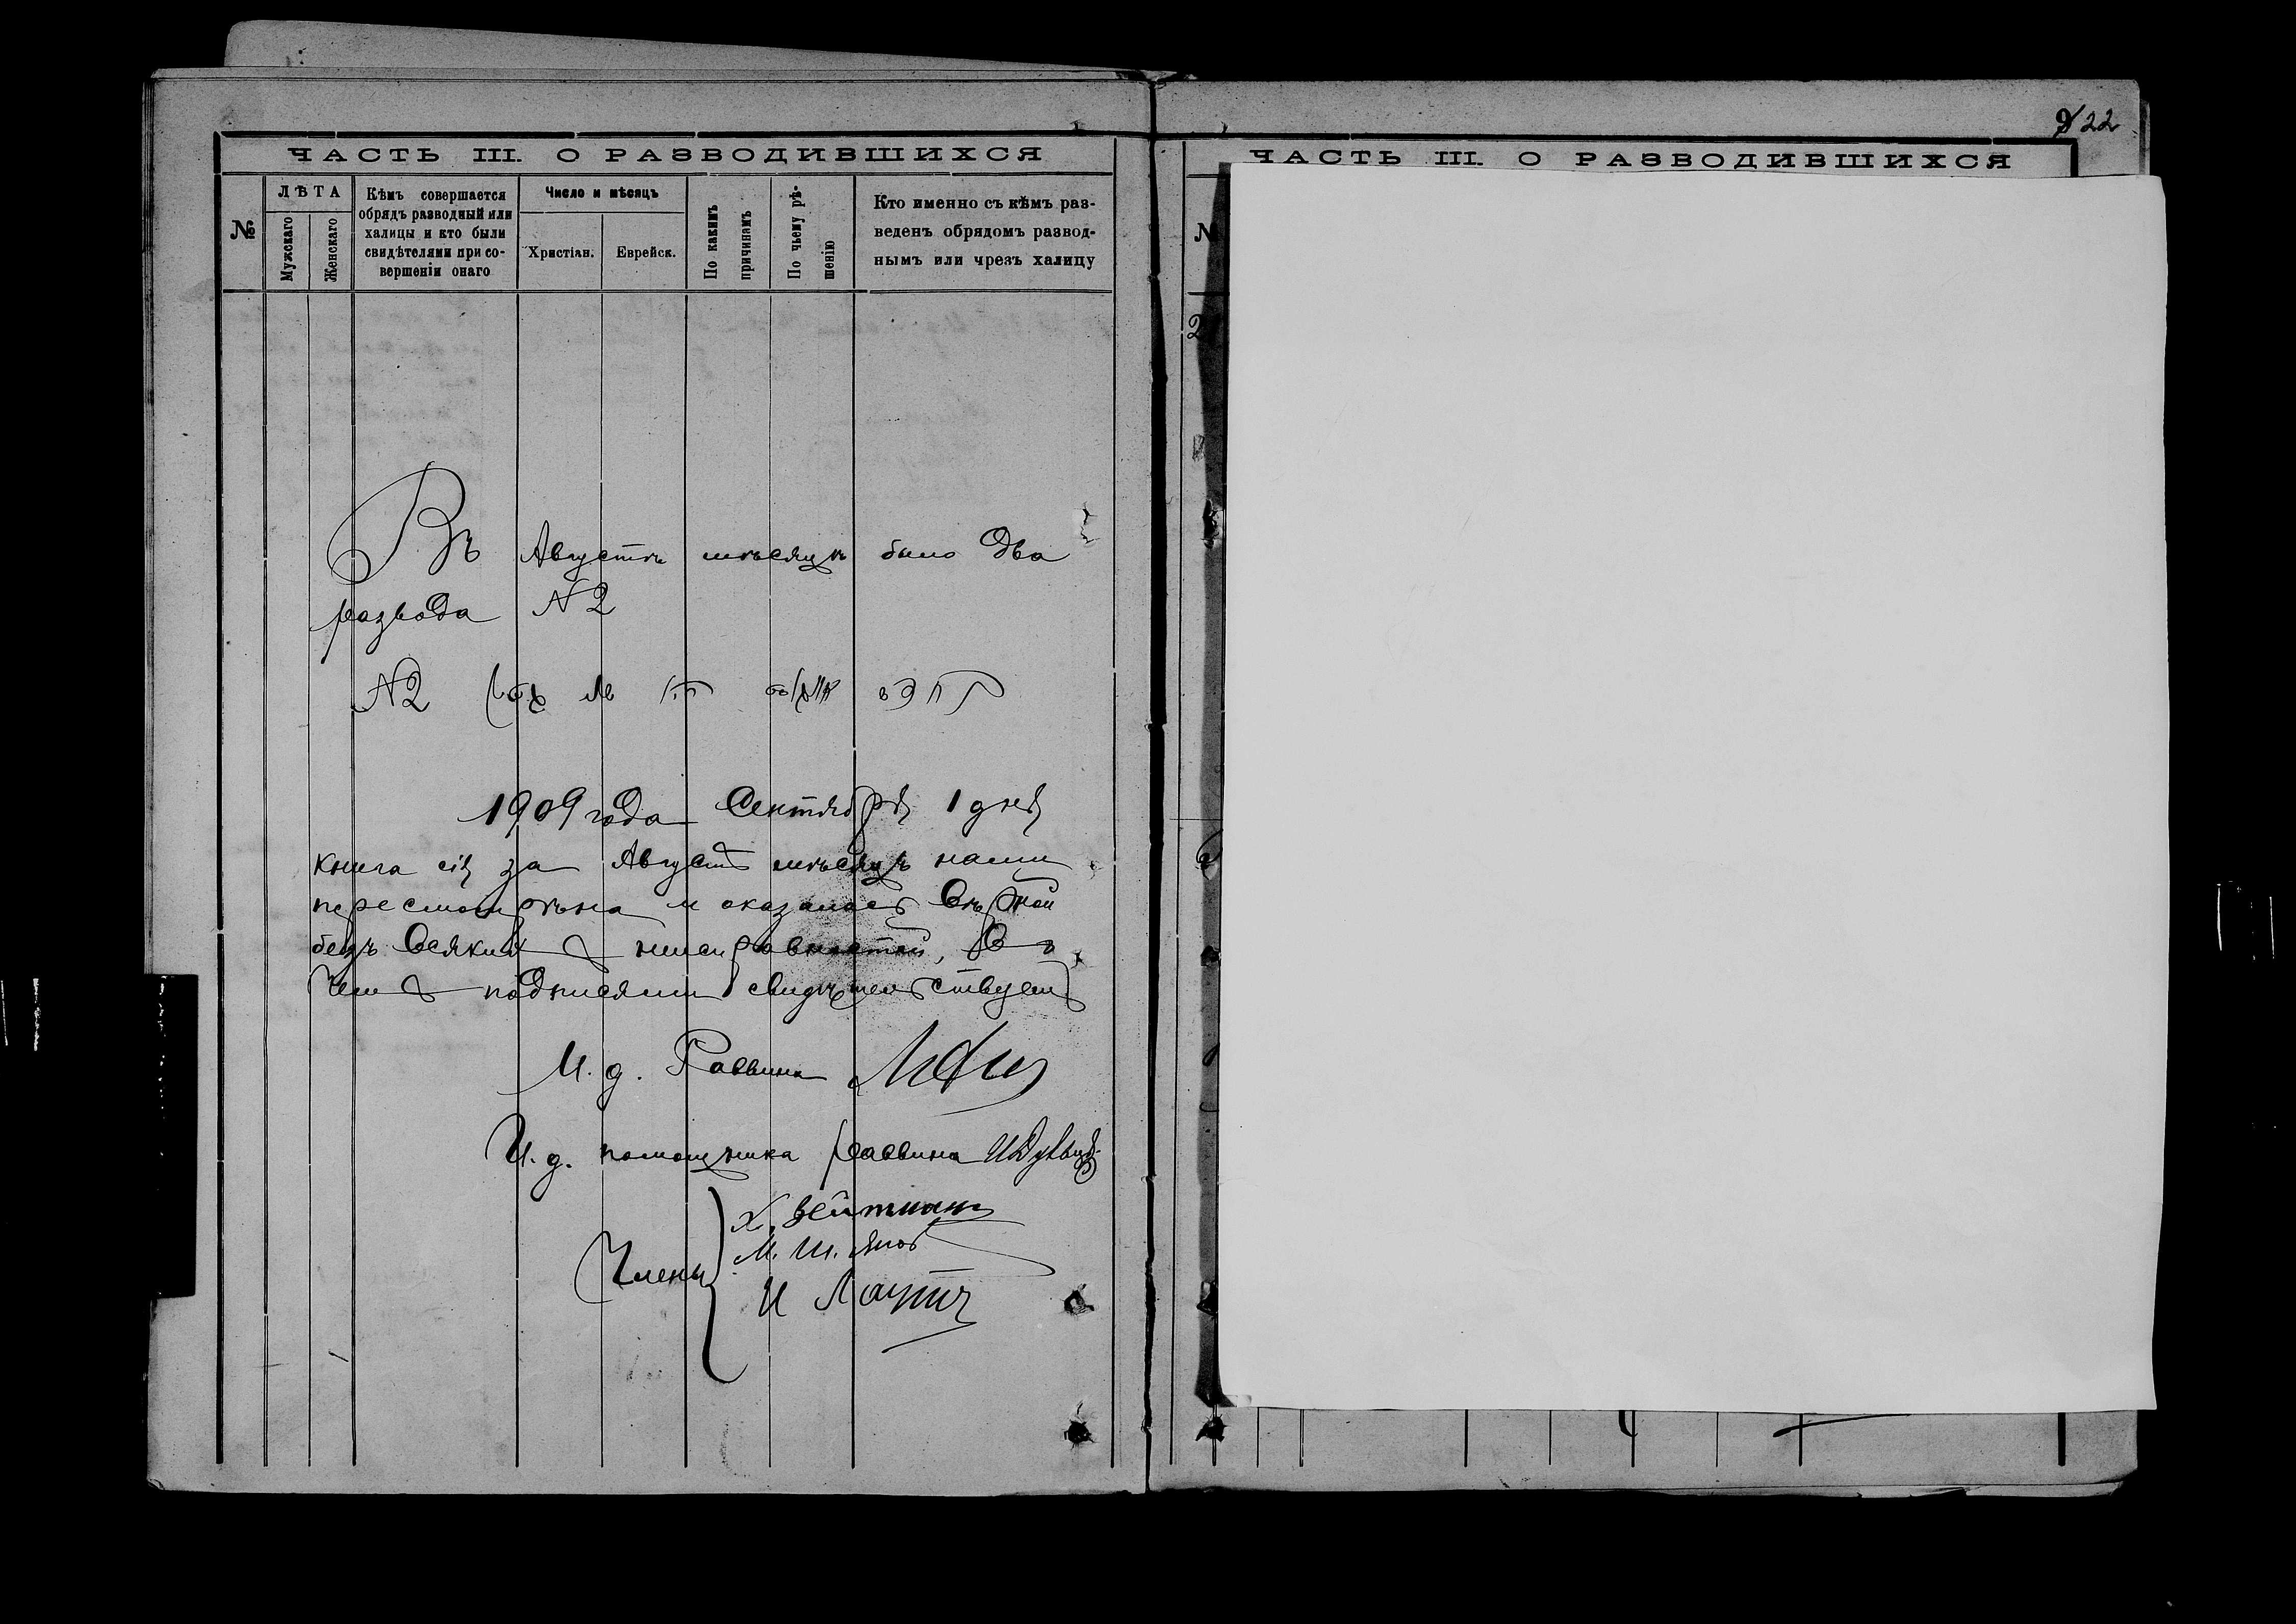 ЧАСТЬ III. О РАЗВОДИВШИХСЯ
№
ЛѢТА
Мужскаго
Женскаго
Кѣмъ совершается
обрядъ разводный или
халицы и кто были
свидѣтелями при со-
вершеніи онаго
Число и мѣсяцъ
Христіан.
Еврейск.
По какимъ
причинамъ
По чьему рѣ-
шенію
Кто именно съ кѣмъ раз-
веденъ обрядомъ развод-
нымъ или чрезъ халицу
Въ Августѣ мѣсяцѣ было два
развода №2
№2
1909 года Сентября 1 дня
книга сія за Августъ мѣсяцъ нами
пересмотрѣна и оказалась вѣрной
безъ всякихъ неисправностей, о
чемъ подписями свидѣтельствуемъ
И. д. Раввина
И. д. помощника раввина
Члены
Х. Вейтманъ
М. Ш.
И
22
ЧАСТЬ III. О РАЗВОДИВШИХСЯ